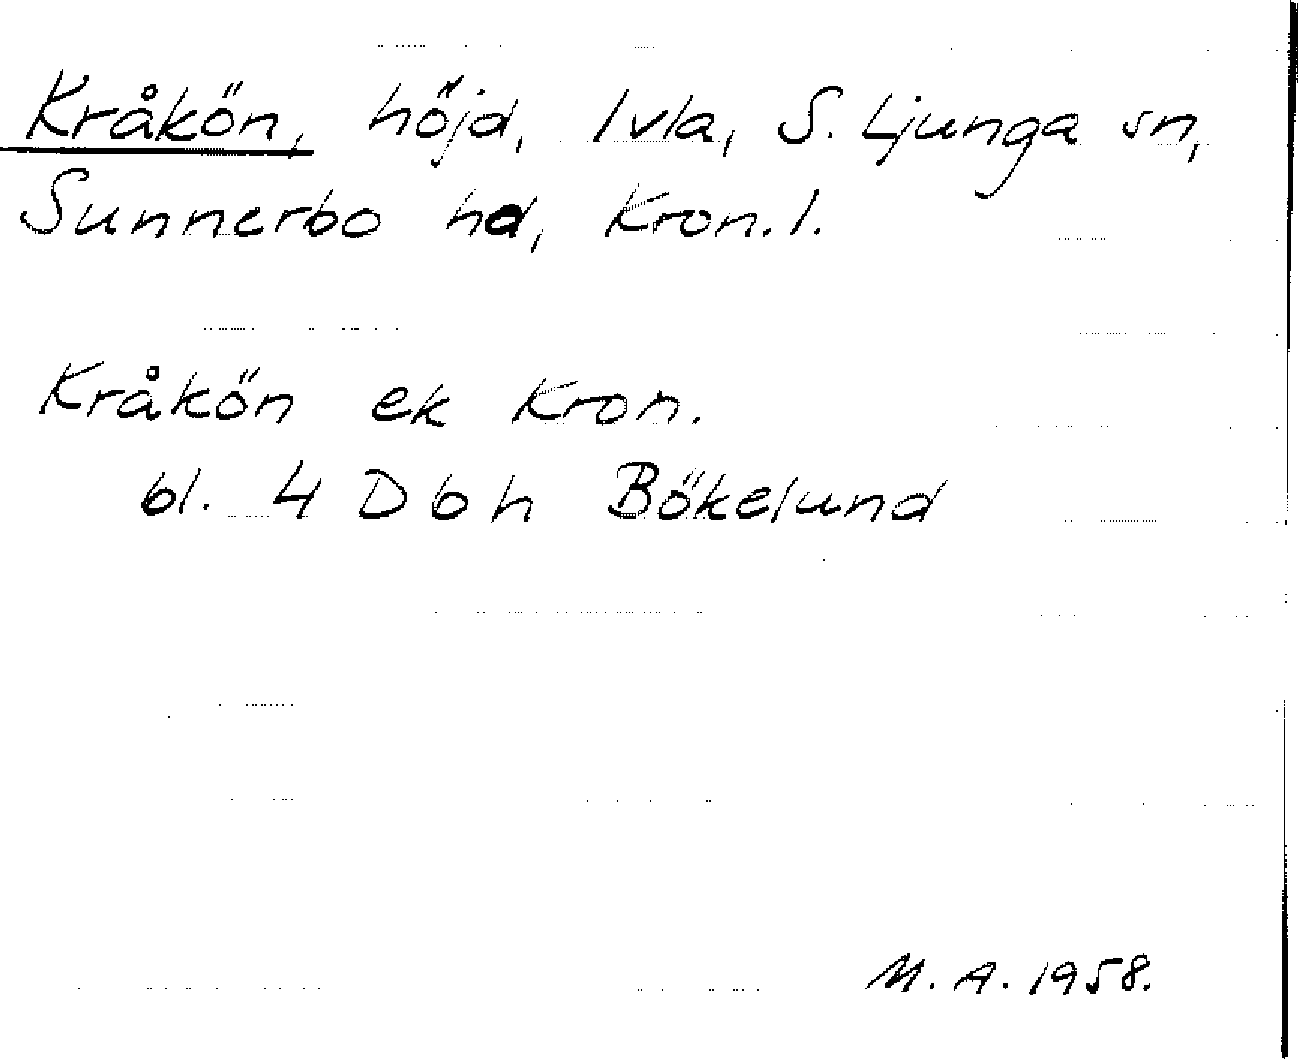 Kråkön, höjd, Ivla, S. Ljunga sn,
Sunnerbo hd, Kron. l.
Kråkön ek Kron.
bl. 4 D b h Bökelund
M. A. 1958.